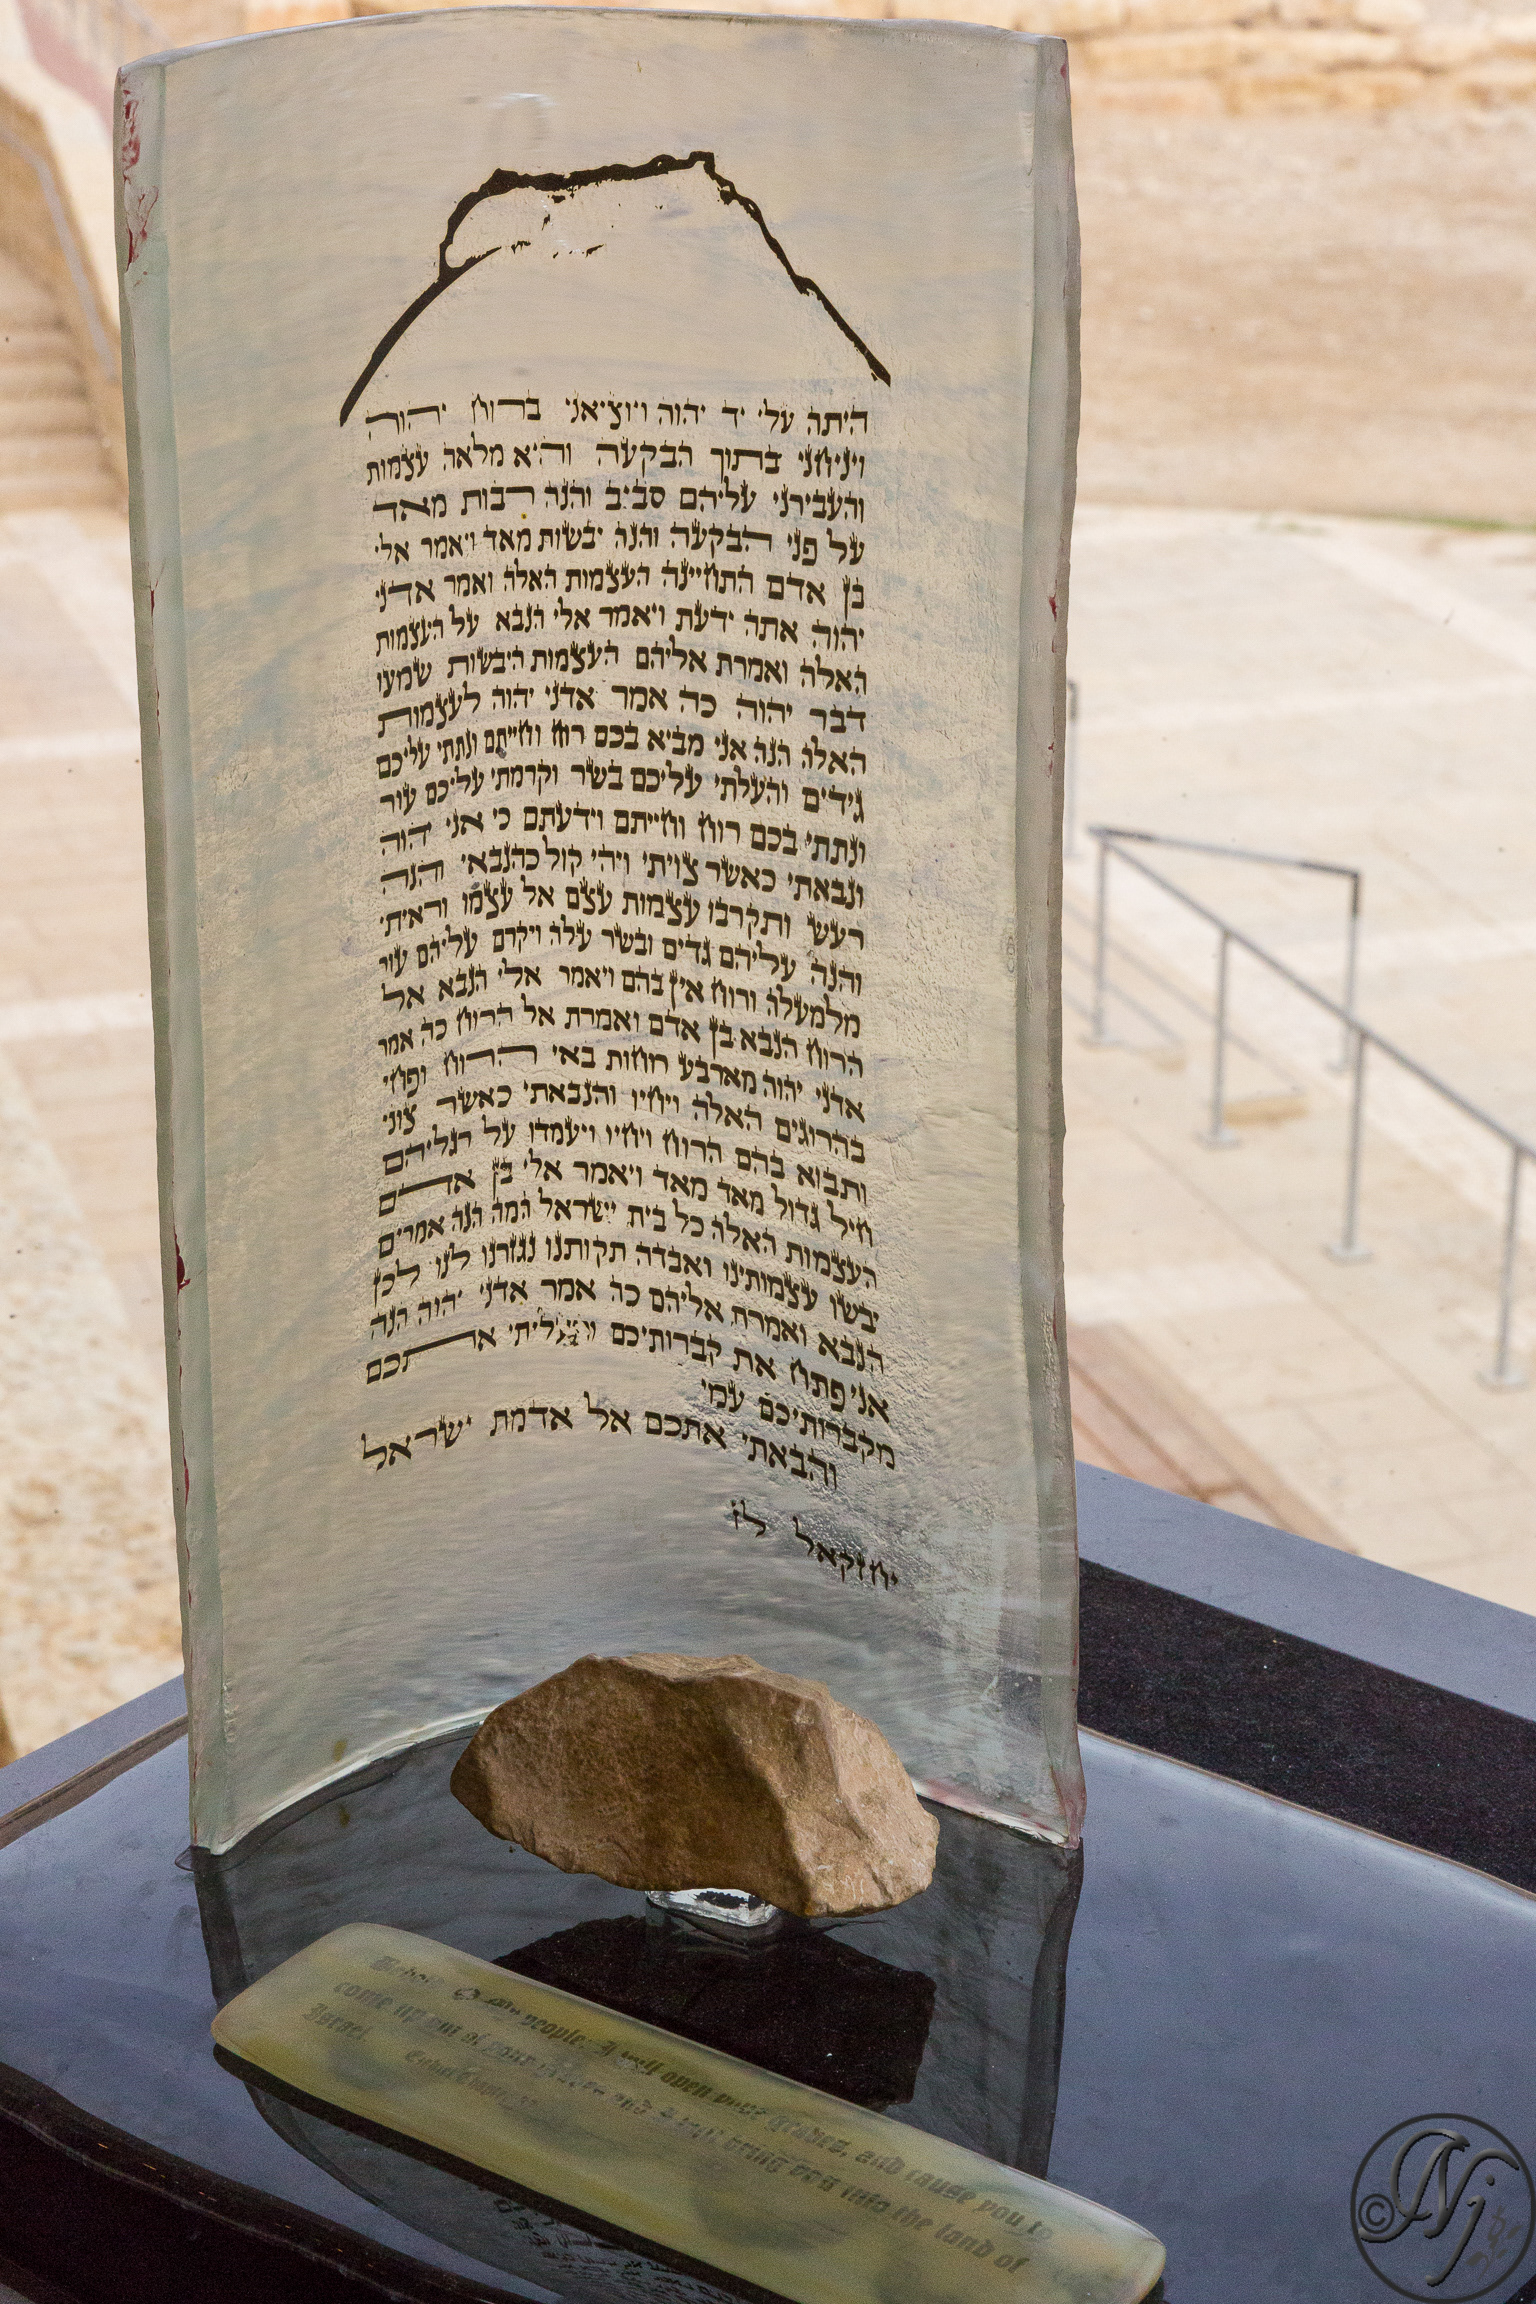 היתה עלי יד יהוה ויוציאני ברוח יהוה
ויניחני בתוך הבקעה והיא מלאה עצמות
והעבירני עליהם סביב והנה רבות מאד
על פני הבקעה והנה יבשות מאד ויאמר אלי
בן אדם התחיינה העצמות האלה ואמר אדני
יהוה אתה ידעת ויאמר אלי הנבא על העצמות
האלה ואמרת אליהם העצמות היבשות שמעו
דבר יהוה כה אמר אדני יהוה לעצמות
האלה הנה אני מביא בכם רוח וחייתם ונתתי עליכם
גידים והעלתי עליכם בשר וקרמתי עליכם עור
ונתתי בכם רוח וחייתם וידעתם כי אני יהוה
ונבאתי כאשר צויתי ויהי קול כהנבאי והנה
רעש ותקרבו עצמות עצם אל עצמו וראיתי
והנה עליהם גדים ובשר עלה ויקרם עליהם עור
מלמעלה ורוח אין בהם ויאמר אלי הנבא אל
הרוח הנבא בן אדם ואמרת אל הרוח כה אמר
אדני יהוה מארבע רוחות באי הרוח ופחי
בהרוגים האלה ויחיו והנבאתי כאשר צוני
ותבוא בהם הרוח ויחיו ויעמדו על רגליהם
חיל גדול מאד מאד ויאמר אלי בן אדם
העצמות האלה כל בית ישראל המה הנה אמרים
יבשו עצמותינו ואבדה תקותנו נגזרנו לנו לכן
הנבא ואמרת אליהם כה אמר אדני יהוה הנה
אני פתח את קברותיכם והעליתי אתכם
מקברותיכם עמי
והבאתי אתכם אל אדמת ישראל
יחזקאל לז
Behold O My people, I will open your graves, and cause you to
come up out of your graves and I will bring you into the land of
Israel
© Nj